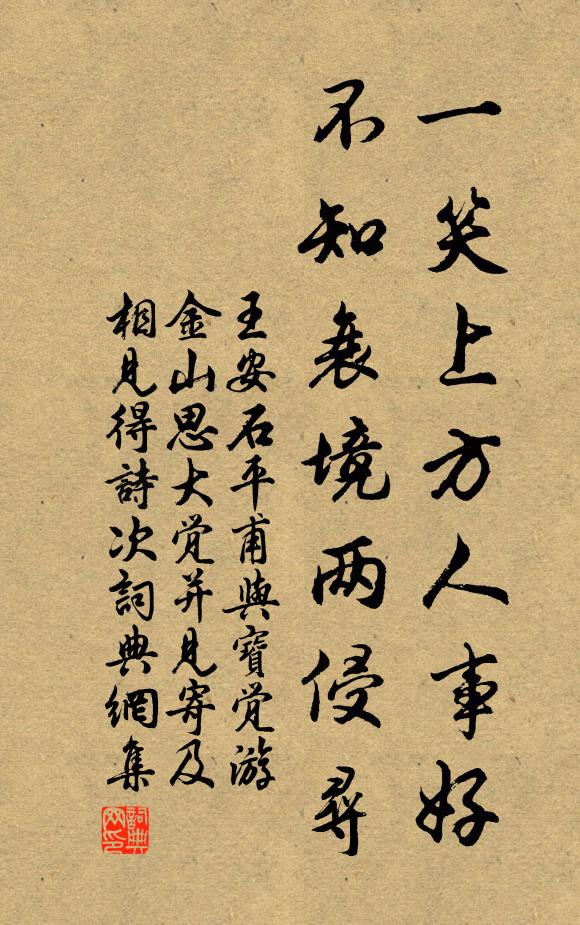 一笑上方人事好
不知衰境两侵尋
王安石平甫與寶覺游
金山思大覺并見寄及
相見得詩次詞典網集
詞典
网印